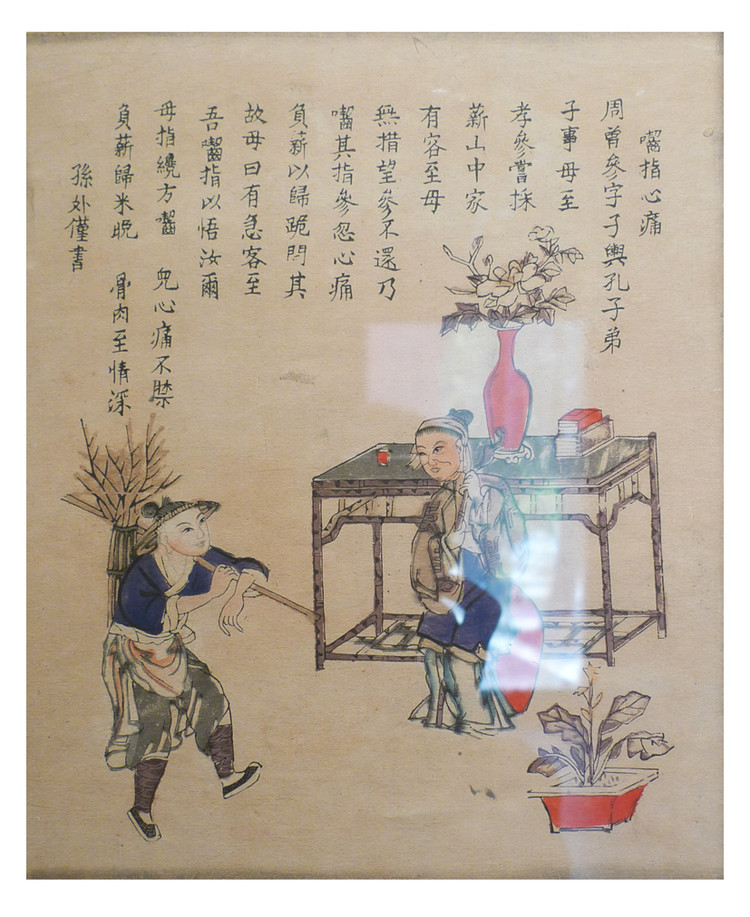 嚙指心痛
周曾參字子輿孔子弟
子事母至
孝參嘗採
薪山中家
有客至母
無措望參不還乃
嚙其指參忽心痛
負薪以歸跪問其
故母曰有急客至
吾嚙指以悟汝爾
母指纔方嚙 兒心痛不禁
負薪歸未晚 骨肉至情深
孫外僅書